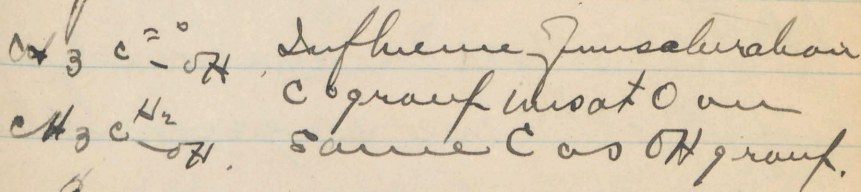 CH3 C=O-OH. Influence of unsaturation
C group unsat O on
CH3 CH2-OH. same C as OH group.